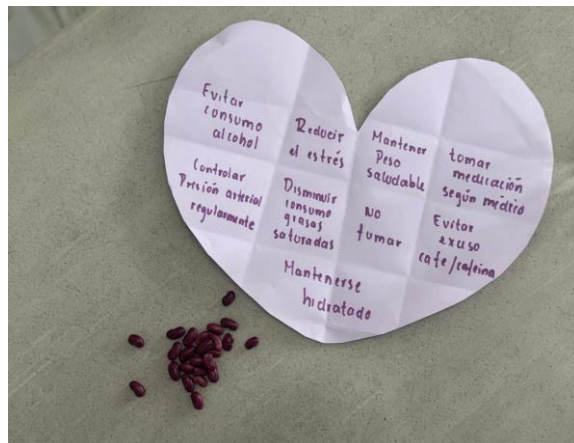 Evitar
consumo
alcohol
Reducir
el estrés
Mantener
Peso
saludable
tomar
medicación
según médico
Controlar
Presión arterial
regularmente
Disminuir
consumo
grasas
saturadas
NO
fumar
Evitar
exuso
cafe/cafeina
Mantenerse
hidratado